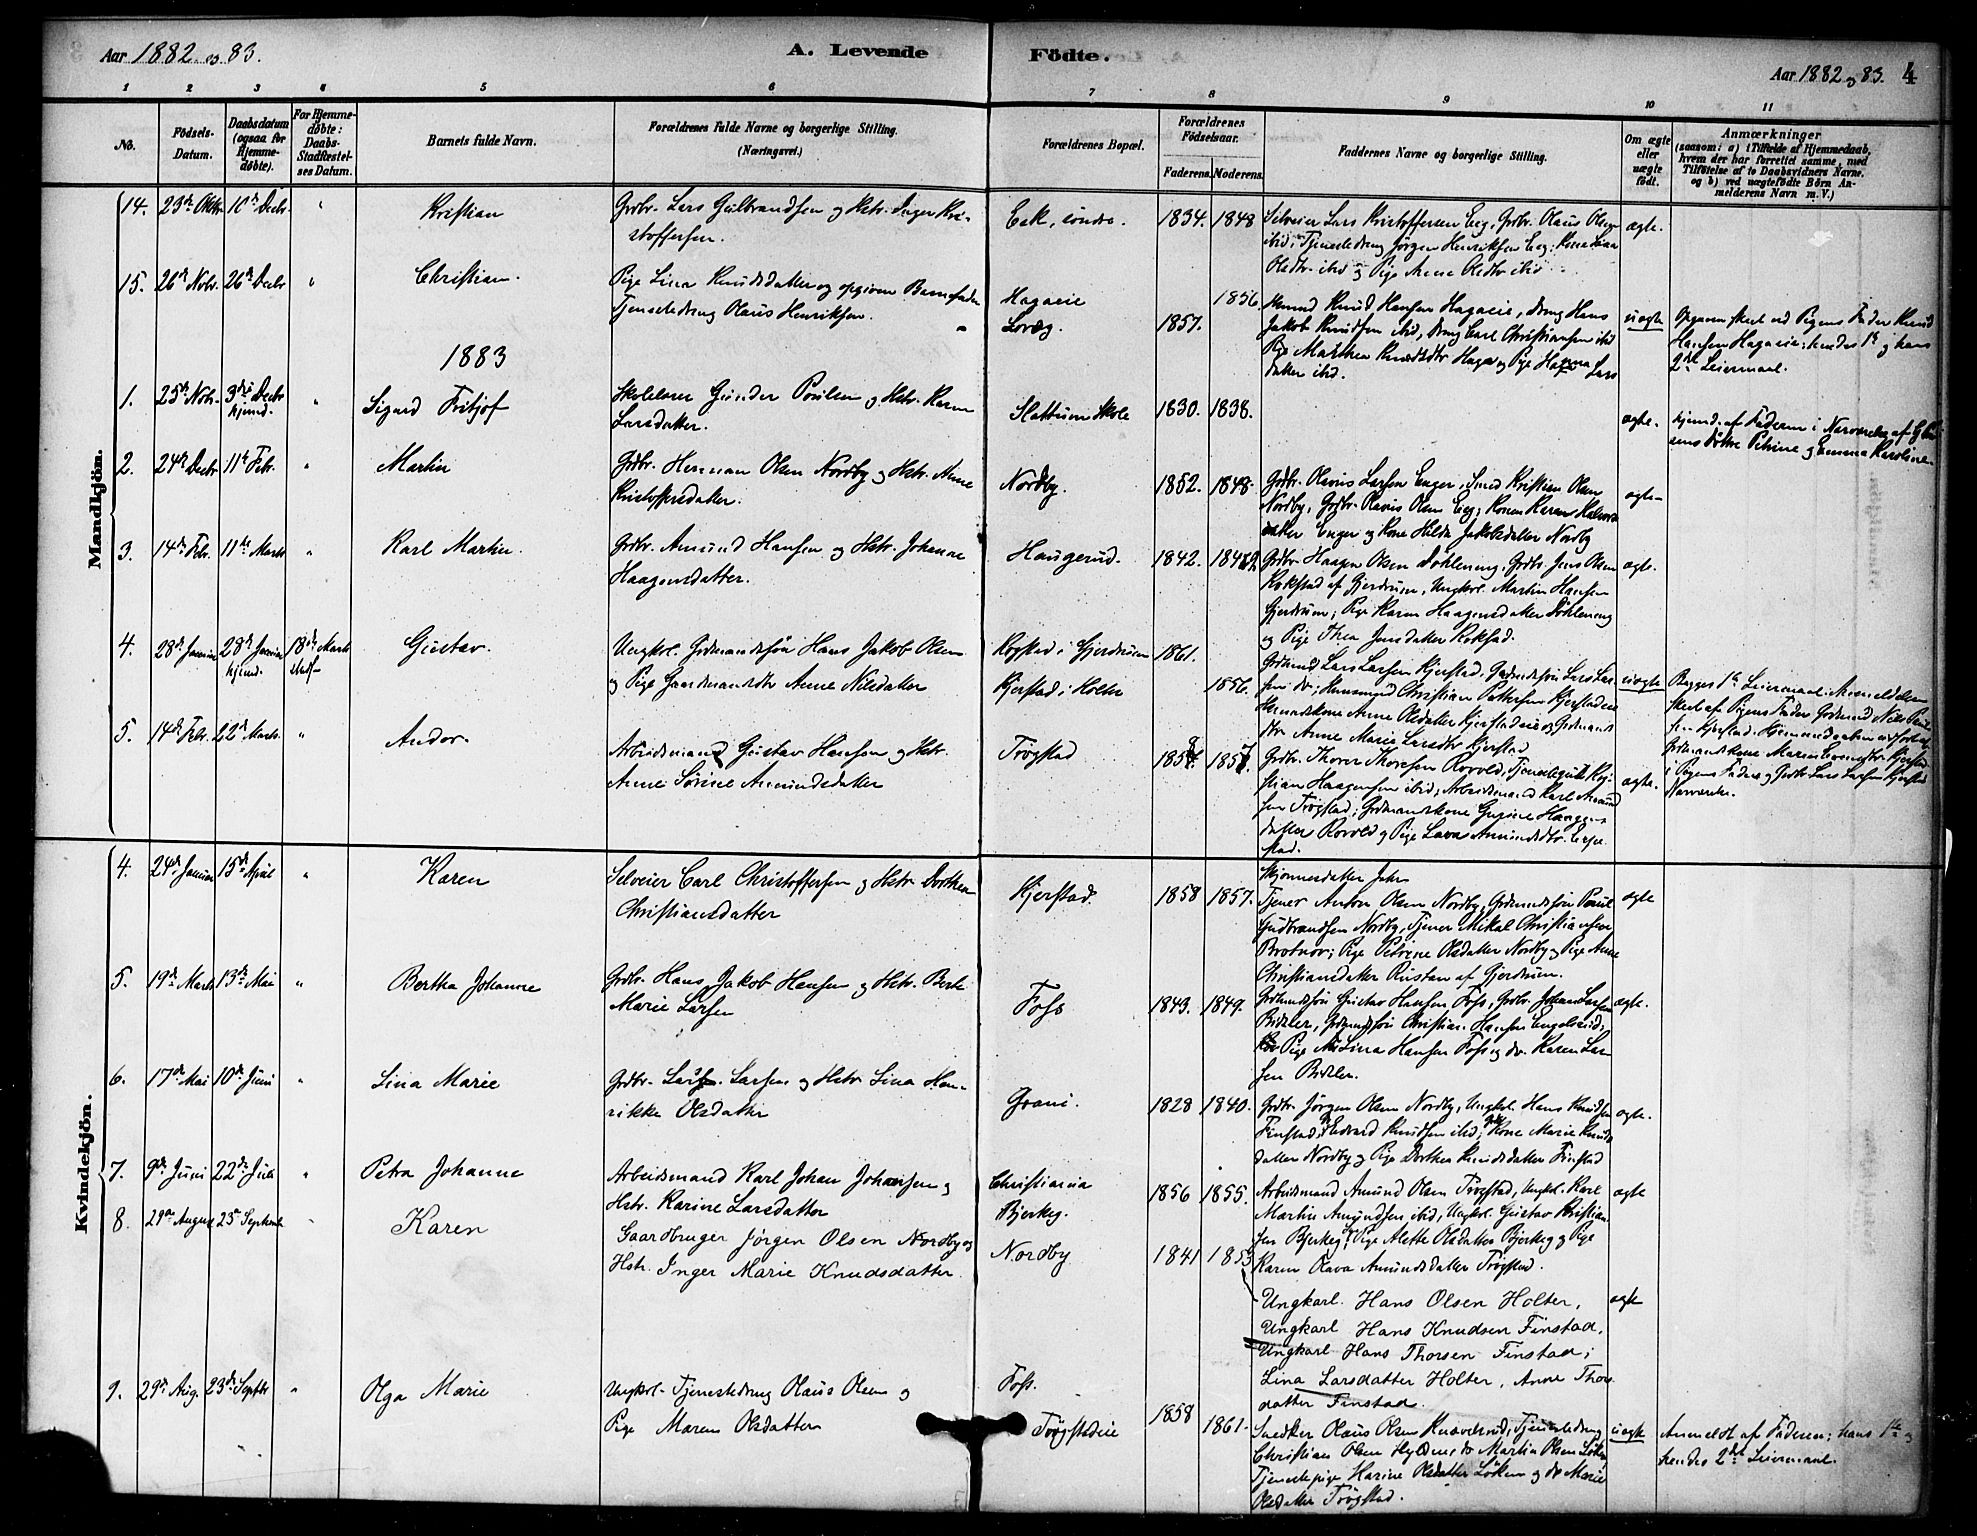 Aar 1882 og 83.
A. Levende
Födte.
Aar 1882 og 83.
4
1 2 3 4 5 6 7 8 9 10 11
No.
Födsels-
Datum.
Daabsdatum
(ogsaa for
Hjemme-
døbte).
For Hjemme-
døbte:
Daabs-
Stadfæstel-
ses Datum.
Barnets fulde Navn.
Forældrenes fulde Navne og borgerlige Stilling.
(Næringsvei.)
Forældrenes Bopæl.
Forældrenes
Födselsaar.
Faderens. Moderens.
Faddernes Navne og borgerlige Stilling.
Om ægte
eller
uægte
födt.
Anmærkninger
(saasom: a) i Tilfælde af Hjemmedaab,
hvem der har forrettet samme, med
Tilføielse af to Daabsvidners Navne.
og b) ved uægtefødte Börn An-
melderens Navn m. V.)
Mandkjön.
14. 23de Oktbr 10de Decbr " Kristian
Grdbr. Lars Gulbrandsen og Hstr. Inger Kri-
stoffersen.
Eek, søndre. 1834. 1848
Selveier Lars Kristoffersen Eeg, Grdbr. Olaus Olsen
ibid, Tjenestedreng Jörgen Henriksen Eeg, Kone Lina
Olsdtr. ibid og Pige Anne Olsdtr ibid
ægte.
15. 26de Novbr. 26de Decbr " Christian.
Pige Lina Knudsdatter og opgiven Barnefader
Tjenestedreng Olaus Henriksen.
Hagaeie 1856.
Lovæg. 1857.
Husmand Knud Hansen Hagaeie, dreng Hans
Jakob Knudsen ibid, dreng Carl Christiansen ibid
Pige Marthea Knudsdtr Haga og Pige Hanna Lars
datter ibid.
uægte
Opgaven skeet ved Pigens Fader Knud
Hansen Hagaeie; hendes 1ste og hans
2det Leiermaal.
1883
1. 25de Novbr. 3die Decbr hjemd. " Sigurd Fritjof
Skolelærer Gunder Poulsen og Hstr. Karen
Larsdatter.
Slattum Skole 1830. 1838.
ægte.
hjemd. af Faderen i Nærværelse af
Döttre Petrine og Emma Karoline.
2. 24de Decbr 11te Febr. " Martin
Grdbr. Herman Olsen Nordby og Hstr. Anne
Kristoffersdatter.
Nordby. 1852. 1848.
Grdbr. Olavus Larsen Enger, Smed Kristian Olsen
Nordby, Grdbr. Olavus Olsen Eeg; Konen Karen Halvors
datter Enger og Kone Hilda Jakobsdatter Nordby
ægte
3. 14de Febr. 11te Marts " Karl Martin.
Grdbr. Amund Hansen og Hstr. Johanne
Haagensdatter.
Haugerud. 1842.
Grdbr. Haagen Olsen Döhleneng, Grdbr. Jens Olsen
Rokstad af Gjerdrum, Ungkrl. Martin Hansen
Gjerdrum; Pige Karen Haagensdatter Döhleneng
og Pige Thea Jensdatter Rokstad.
ægte.
4. 28de Januar 28de Januar hjemd. 18de Marts stadf. Gustav.
Ungkrl. Grdmandssön Hans Jakob Olsen
og Pige Gaardmandsdtr Anne Nilsdatter
Rogstad i Gjerdrum 1861.
Kjerstad i Holter 1856.
Grdmand Lars Larsen Kjerstad, Grdmandssön Lars Lar-
sen do; Husmand Christian Pettersen Kjerstadeie
Husmandskone Anne Olsdatter Kjerstadeie og Grdmands
dtr Anne Maria Larsdtr Kjerstad
uægte
Begges 1ste Leiermaal. Anmeldelsen
skeet af Pigens Fader Grdmand Nils Paul-
sen Kjerstad. Hjemmedaaben udfört af
Grdmandskone Maren Kjerstad
i Pigens Faders og Grdbr. Lars Larsen Kjerstad
Nærværelse.
5. 14de Febr. 22de Marts " Andor.
Arbeidsmand Gustav Hansen og Hstr.
Anne Sörine Amundsdatter
Trögstad
Grdbr. Thorer Thoresen Rovold, Tjenestegut Kri-
stian Haagensen ibid, Arbeidsmand Karl Amund
sen Trögstad; Grdmandskone Gunine Haagens
datter Rovold og Pige Lava Amundsdtr.
stad.
ægte.
Kvindekjön.
4. 24de Januar 15de April " Karen
Selveier Carl Christoffersen og Hstr. Dorthea
Christiansdatter
Kjerstad. 1858 1857.
Tjener Anton Olsen Nordby, Grdmandssön Paul
Gudbrandsen Nordby, Tjener Mikal Christiansen
Brotnov; Pige Petrine Olsdatter Nordby og Pige Anne
Christiansdatter Rustan af Gjerdrum.
ægte
5. 19de Marts 13de Mai " Bertha Johanne
Grdbr. Hans Jakob Hansen og Hstr. Berte
Marie Larsen
Foss 1843. 1849.
Grdmandssön Gustav Hansen Foss, Grdbr. Johan Larsen
Bidsler, Grdmandssön Christian Hansen Engelsrud;
Pige Lina Hansen Foss og do. Karen Lar-
sen Bidsler.
ægte.
6. 17de Mai 10de Juni " Lina Marie
Grdbr. Lars Larsen og Hstr Lina Hen-
rikke Olsdatter
Grani. 1828 1840.
Grdbr Jörgen Olsen Nordby, Ungkrl. Hans Knudsen
Finstad, Edvard Knudsen ibid; Kone Marie Knuds
datter Nordby og Pige Dorthea Knudsdatter Finstad
ægte.
7. 9de Juni 22de Juli " Petra Johanne
Arbeidsmand Karl Johan Johansen og
Hstr. Karine Larsdatter
Christiania
Bjerkeg. 1856 1855.
Arbeidsmand Amund Olsen Trögstad, Ungkrl. Karl
Martin Amundsen ibid, Ungkrl. Gustav Kristian
sen Bjerkeg; Pige Alette Olsdatter Bjerkeg og Pige
Karen Olava Amundsdatter Trögstad.
ægte
8. 29de August 23de Septemb " Karen
Gaardbruger Jörgen Olsen Nordby og
Hstr. Inger Marie Knudsdatter.
Nordby 1841 1853
Ungkarl. Hans Olsen Holter,
Ungkarl Hans Knudsen Finstad,
Ungkarl Hans Thorsen Finstad;
Lina Larsdatter Holter, Anne Thors
datter Finstad.
ægte
9. 29de Aug. 23de Septbr " Olga Marie
Ungkrl. Tjenestedreng Olaus Olsen og
Pige Maren Olsdatter
Foss. 1858
Trögstadeie 1861.
Snedker Olaus Olsen Tjenestedreng
Christian Olsen do Martin Olsen Löken,
Tjenestepige Harine Olsdatter Löken og do Marie
Olsdatter Trögstad.
uægte
Anmeldt af Faderen; hans 1ste og
hendes 2det Leiermaal.